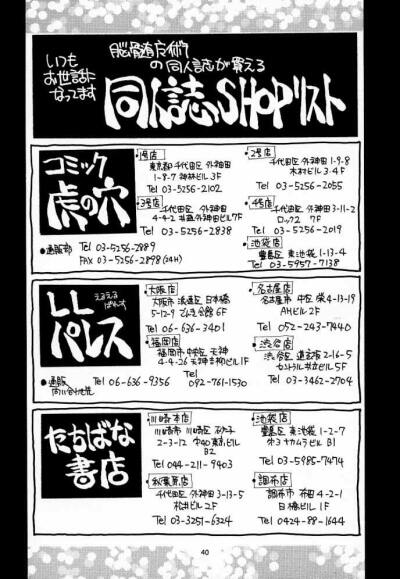 いつも
お世話に
なってます
脳髄補完術
の同人誌が買える
同人誌SHOPリスト
コミック
虎の穴
1号店
東京都千代田区外神田
1-8-7 神林ビル3F
Tel 03-5256-2102
2号店
千代田区外神田1-9-8
木村ビル3・4F
Tel 03-5256-2055
3号店
千代田区外神田
Tel 03-5256-2838
4号店
千代田区外神田3-11-2
ロック2 7F
Tel 03-5256-2019
池袋店
豊島区東池袋1-13-4
Tel 03-5957-7138
●通販部 Tel 03-5256-2889
FAX 03-5256-2898(24H)
LL
えるえる
ぱれす
パレス
大阪店
大阪市浪速区日本橋
5-12-9 でんき会館6F
Tel 06-636-3401
名古屋店
名古屋市中区栄4-13-19
AHビル2F
Tel 052-243-7440
福岡店
福岡市中央区天神
4-4-26 天神吉柳ビル1F
Tel
092-761-1530
渋谷店
渋谷区道玄坂2-16-5
Tel 03-3462-2704
●通販 Tel 06-636-9356
たちばな
書店
川崎本店
川崎市川崎区砂子
2-3-12 中40東京ビル
B2
Tel 044-211-9403
池袋店
豊島区東池袋1-2-7
ナカムラビルB1
Tel 03-5985-7474
秋葉原店
千代田区外神田3-13-5
松井ビル2F
Tel 03-3251-6324
調布店
調布市布田4-2-1
日橋ビル1F
Tel 0424-88-1644
40